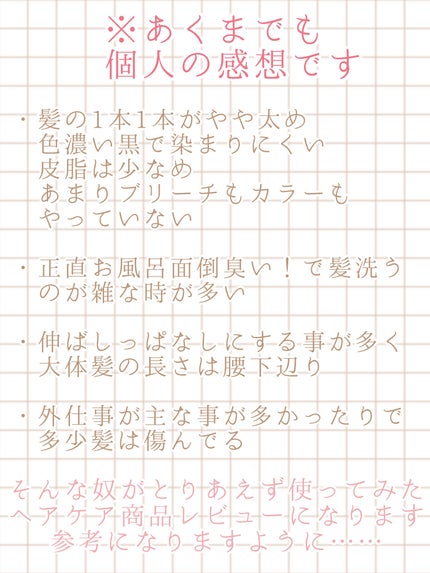 ※あくまでも
個人の感想です
・髪の1本1本がやや太め
色濃い黒で染まりにくい
皮脂は少なめ
あまりブリーチもカラーも
やっていない
・正直お風呂面倒臭い！で髪洗う
のが雑な時が多い
・伸ばしっぱなしにする事が多く
大体髪の長さは腰下辺り
・外仕事が主な事が多かったりで
多少髪は傷んでる
そんな奴がとりあえず使ってみた
ヘアケア商品レビューになります
参考になりますように……